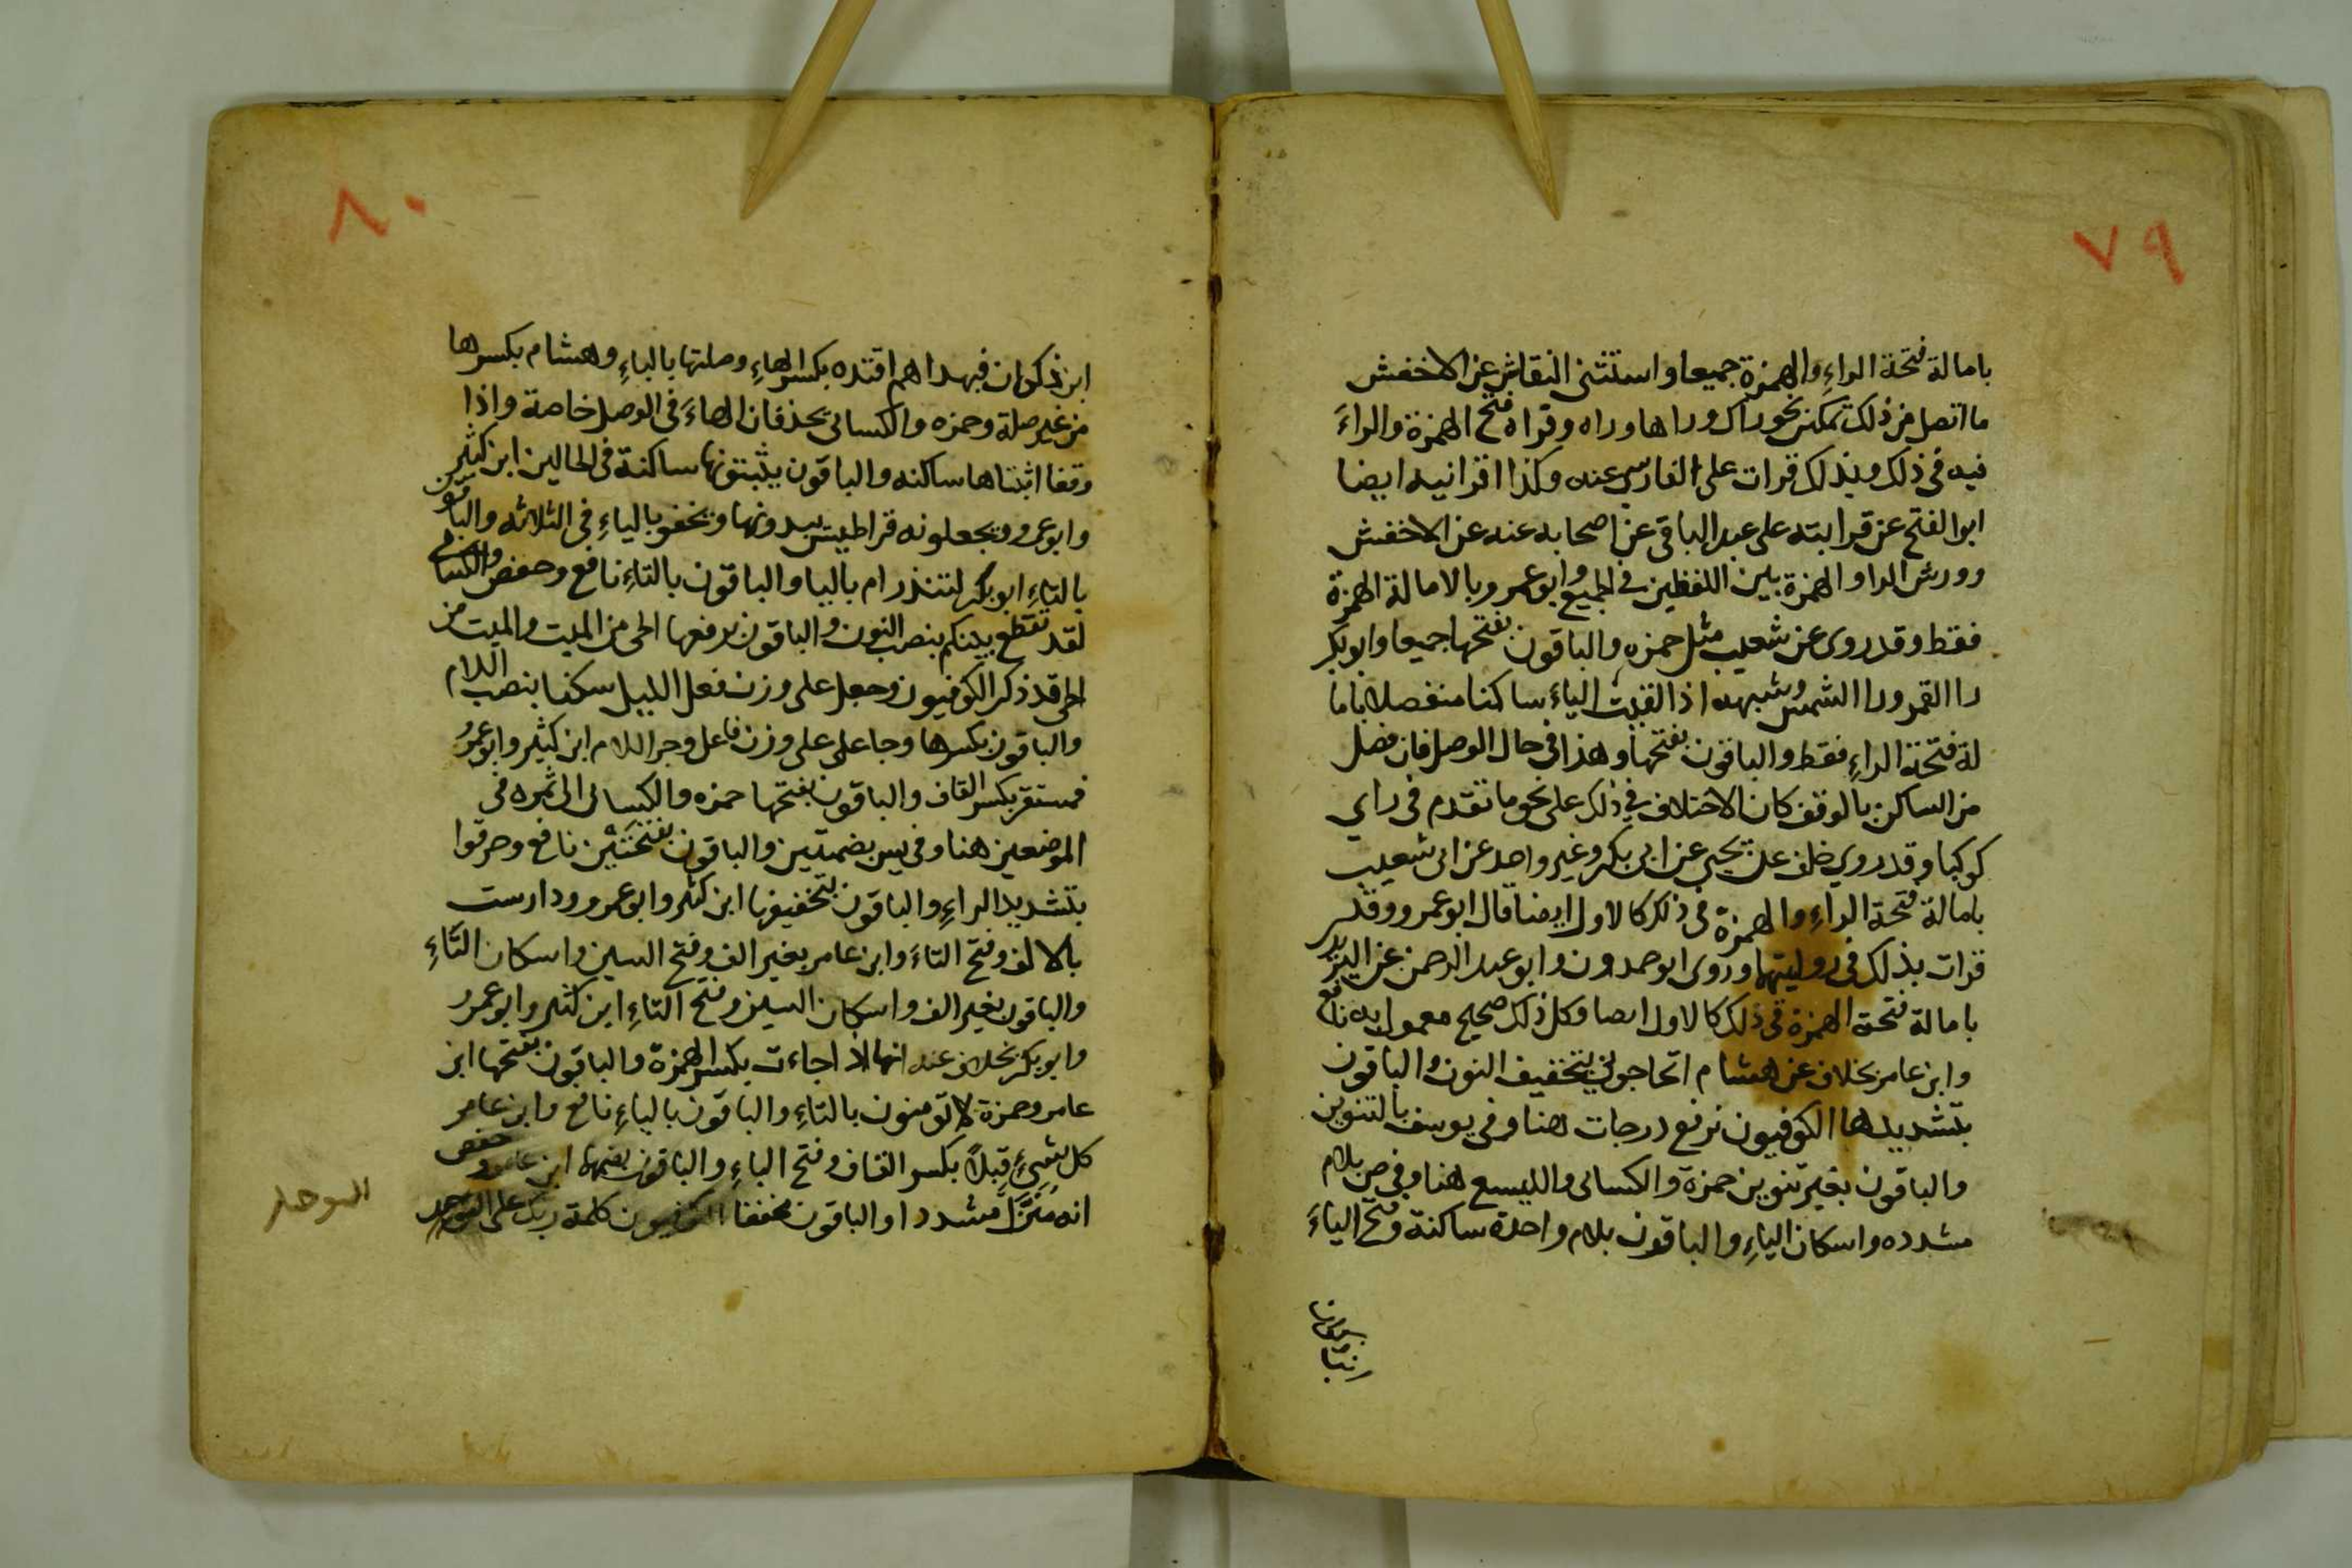 ٧٩
بامالة فتحة الراءِ والهمزة جميعا واستثنى النقاش عن الاخفش
ما اتصل من ذلك بمكنى نحو راك وراها وراه وقراه فتح الهمزة والراءَ
فيه في ذلك وبذلك قرات على الفارسي عنه وكذا اقرانيه ايضا
ابوا لفتح عن قرابته على عبد الباقى عن اصحابه عنه عن الاخفش
وورش الرا والهمزة بين اللفظين في الجميع وابو عمرو بالامالة الهمزة
فقط وقد روى عن شعيب مثل حمزه والباقون بفتحها جميعا وابو بكر
را القمر ورا الشمس وشبهه اذا لقيت الياءَ ساكنا منفصلا باما
لة فتحة الراءِ فقط والباقون بفتحها وهذا في حال الوصل فان فصل
من الساكن بالوقف كان الاختلاف في ذلك على نحو ما تقدم فى راي
كوكبا وقد روي خلف عن يحيى عن ابى بكر وغير واحد عن ابى شعيب
بامالة فتحة الراءِ والهمزة فى ذلك كالاول ايضا قال ابو عمرو وقد
قرات بذلك فى روايتهما وروى ابو حمدون وابو عبد الرحمن عن اليزيدى
بامالة فتحة الهمزة فى ذلك كالاول ايصا وكل ذلك صحيح معمول به نافع
وابن عامر بخلاف عن هشام اتحاجونى بتخفيف النون والباقون
بتشديدها الكوفيون نرفع درجات هنا وفى يوسف بالتنوين
والباقون بغير تنوين حمزة والكسائى والليسع هنا وفي ص بلام
مشدده واسكان الياءِ والباقون بلام واحدة ساكنة وفتح الياءَ
٨٠
ابن ذكوان فبهداهم اقتده بكسر الهاءِ وصلتها بالياءِ وهشام بكسرها
من غير صلة وحمزه والكسائى يحذفان الهاءَ فى الوصل خاصة واذا
وقفا اثبتاها ساكنه والباقون يثبتونها ساكنة فى الحالين ابن كثير
وابو عمرو ويجعلونه قراطيس يبدونها ويخفو بالياءِ فى الثلاثه والباقون
بالتاءِ ابو بكر لتنذر ام باليا والباقون بالتاءِ نافع وحفص والكسائى
لقد تقطع بينكم بنصب النون والباقون برفعها الحى من الميت والميت من
الحى قد ذكر الكوفيون وجعل على وزن فعل الليل سكنا بنصب اللام
والباقون بكسرها وجاعل على وزن فاعل وجر اللام ابن كثير وابو عمرو
فمستقر بكسر القاف والباقون بفتحها حمزه والكسائى الى ثمره فى
الموضعين هنا وفى يس بضمتين والباقون بفتحتين نافع وخرقوا
بتشديد الراءِ والباقون بتخفيفها ابن كثير وابو عمرو ودارست
بالالف وفتح التاءَ وابن عامر بغير الف وفتح السين واسكان التاءِ
والباقون بغير الف واسكان السين وفتح التاءِ ابن كثير وابو عمرو
وابو بكر بخلاف عنه انها اذا جاءت بكسر الهمزة والباقون بفتحها ابن
عامر وحمزة لا تومنون بالتاءِ والباقون بالياءِ نافع وابن عامر
كل شىءٍ قبلًا بكسر القاف وفتح الباءِ والباقون بضمها ابن عامر وحفص
انه منزل مشددا والباقون مخففا الكوفيون كلمة ربك على التوحيد
التوحيد